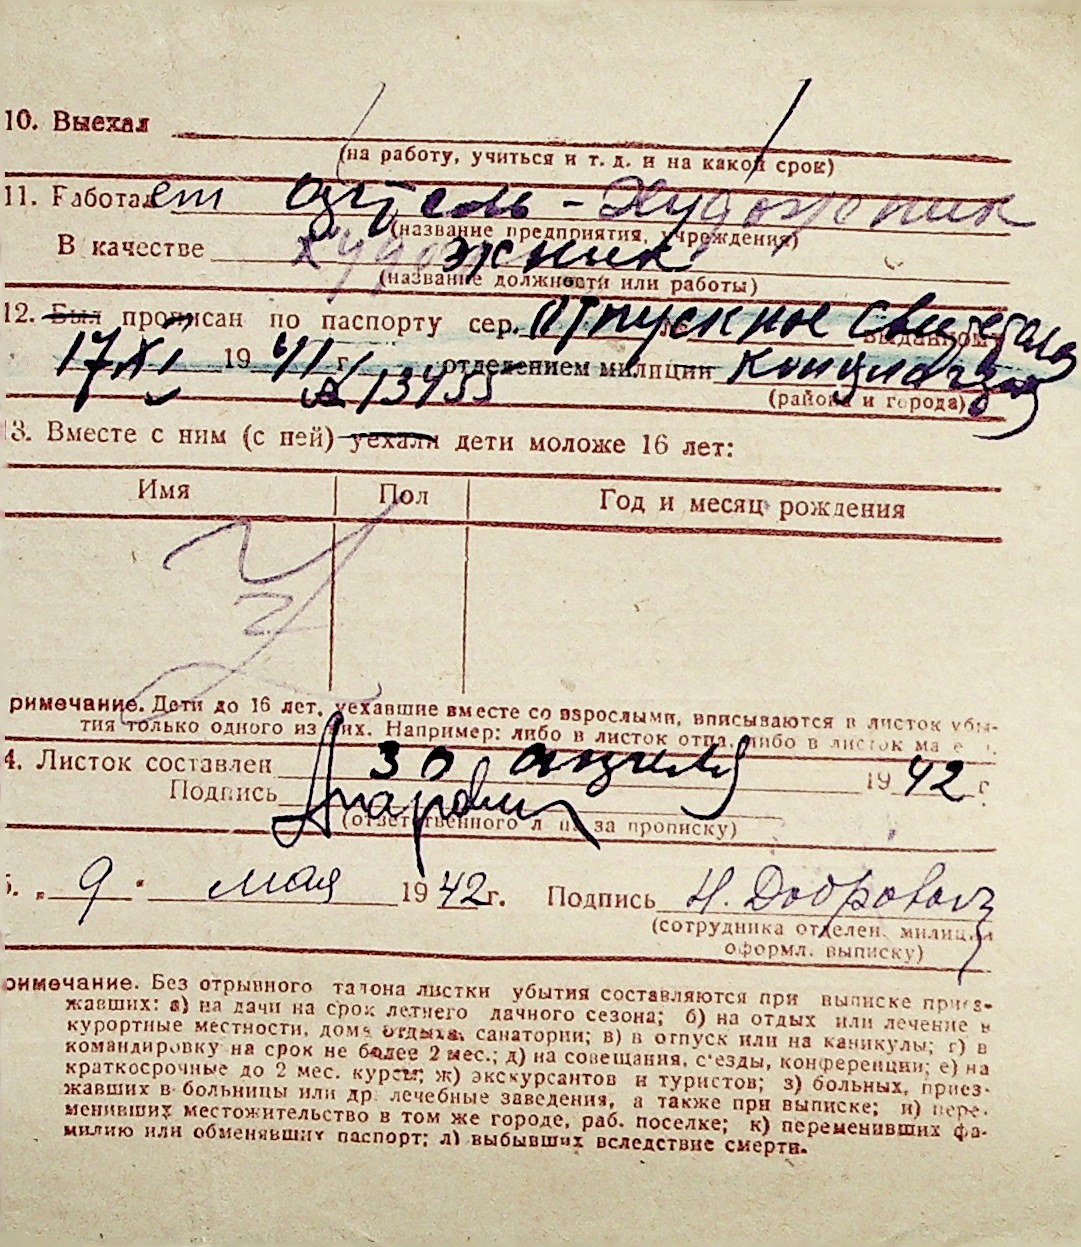 10. Выехал
(на работу, учиться и т. д. и на какой срок)
11. Работает артель - Художник
(название предприятия, учреждения)
В качестве художник
(название должности или работы)
12. Был прописан по паспорту сер. отпускное выданному
17 XI 1941 г. отделением милиции
№ 13455 (района и города)
13. Вместе с ним (с ней) уехали дети моложе 16 лет:
Имя Пол Год и месяц рождения
римечание. Дети до 16 лет, уехавшие вместе со взрослыми, вписываются в листок убы-
тия только одного из них. Например: либо в листок отца, либо в листок ма е и.
4. Листок составлен 30 апреля 1942 г
Подпись
(ответственного лица за прописку)
5. „ 9 " мая 1942 г. Подпись Н. Добровол
(сотрудника отделен. милиции
оформл. выписку)
римечание. Без отрывного талона листки убытия составляются при выписке приез-
жавших: а) на дачи на срок летнего дачного сезона; б) на отдых или лечение в
курортные местности, дома отдыха, санатории; в) в отпуск или на каникулы; г) в
командировку на срок не более 2 мес.; д) на совещания, с'езды, конференции; е) на
краткосрочные до 2 мес. курсы; ж) экскурсантов и туристов; з) больных, приез-
жавших в больницы или др. лечебные заведения, а также при выписке; и) пере-
менивших местожительство в том же городе, раб. поселке; к) переменивших фа-
милию или обменявших паспорт; л) выбывших вследствие смерти.